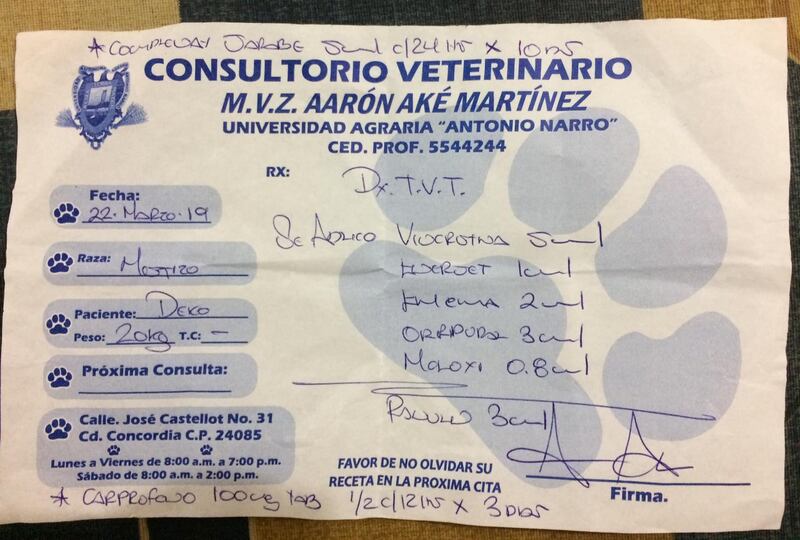 * Jarabe 5ml c/24 hrs x 10 días
CONSULTORIO VETERINARIO
M.V.Z. AARÓN AKÉ MARTÍNEZ
UNIVERSIDAD AGRARIA "ANTONIO NARRO"
CED. PROF. 5544244
RX:
Dx. T.V.T.
Fecha:
22. Marzo. 19
Raza: Mestizo
Paciente: Deko
Peso: 20kg T.C: -
Próxima Consulta:
Se Aplico 5ml
1ml
2ml
3ml
Meloxi 0.8ml
3ml
Calle. José Castellot No. 31
Cd. Concordia C.P. 24085
Lunes a Viernes de 8:00 a.m. a 7:00 p.m.
Sábado de 8:00 a.m. a 2:00 p.m.
FAVOR DE NO OLVIDAR SU
RECETA EN LA PROXIMA CITA
Firma.
* Carprofeno 100mg tab 1/2 c/12 hrs x 3 Dias